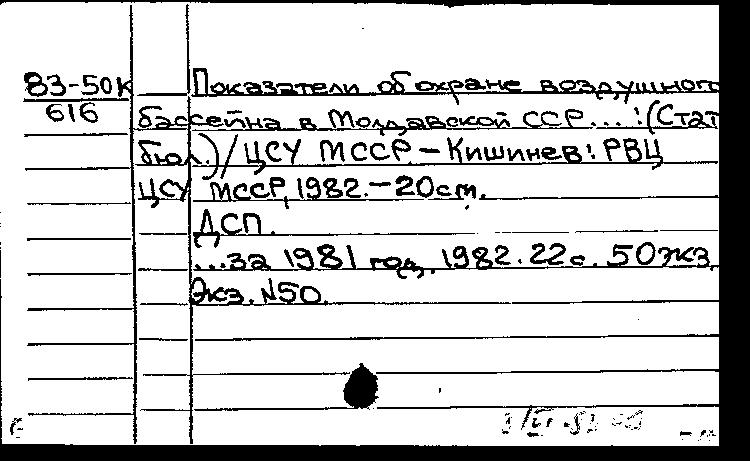 83-50К Показатели об охране воздушного
616 бассейна в Молдавской ССР...: (Стат
бюл.)/ЦСУ МССР. - Кишинев: РВЦ
ЦСУ МССР, 1982. - 20 см.
ДСП.
...за 1981 год. 1982. 22 с. 50 экз.
Экз. №50.